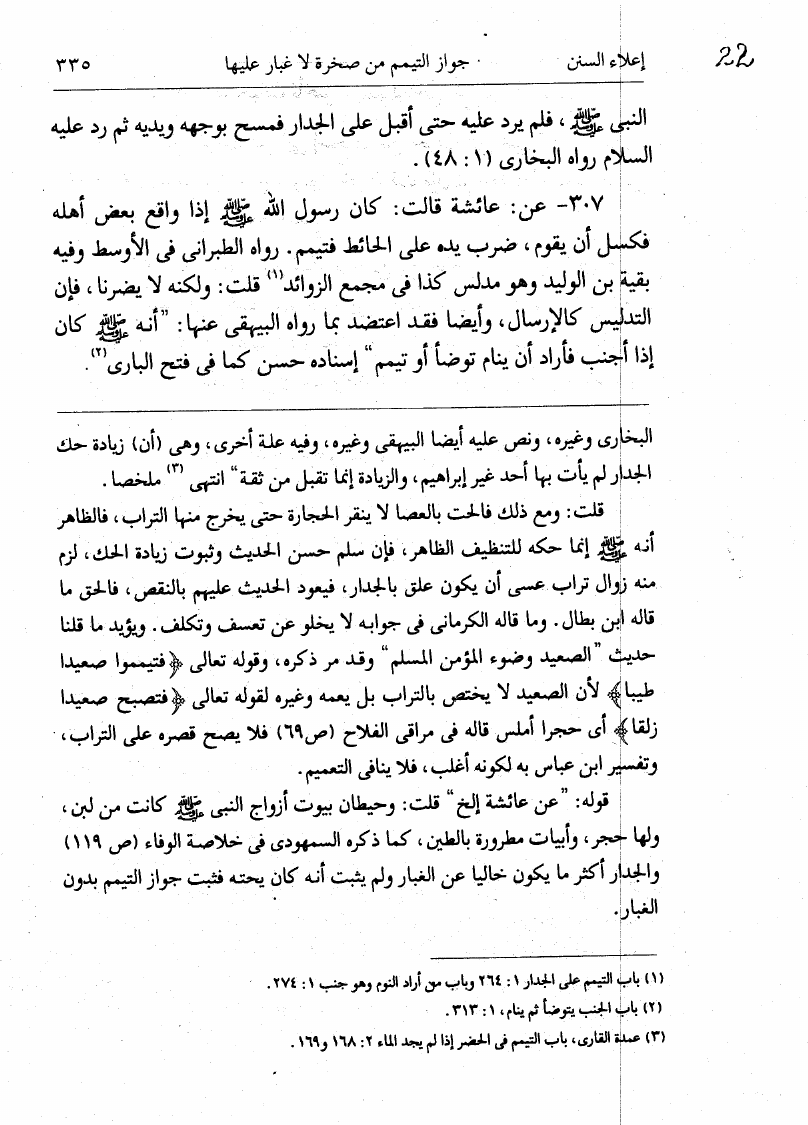 22
إعلاء السنن جواز التيمم من صخرة لا غبار عليها ٣٣٥
النبى ﷺ، فلم يرد عليه حتى أقبل على الجدار فمسح بوجهه ويديه ثم رد عليه
السلام رواه البخارى (١: ٤٨).
٣٠٧- عن: عائشة قالت: كان رسول الله ﷺ إذا واقع بعض أهله
فكسل أن يقوم، ضرب يده على الحائط فتيمم. رواه الطبرانى فى الأوسط وفيه
بقية بن الوليد وهو مدلس كذا فى مجمع الزوائد(١) قلت: ولكنه لا يضرنا، فإن
التدليس كالإرسال، وأيضا فقد اعتضد بما رواه البيهقى عنها: "أنه ﷺ كان
إذا أجنب فأراد أن ينام توضأ أو تيمم" إسناده حسن كما فى فتح البارى(٢).
البخارى وغيره، ونص عليه أيضا البيهقى وغيره، وفيه علة أخرى، وهى (أن) زيادة حك
الجدار لم يأت بها أحد غير إبراهيم، والزيادة إنما تقبل من ثقة" انتهى(٣) ملخصا.
قلت: ومع ذلك فالحت بالعصا لا ينقر الحجارة حتى يخرج منها التراب، فالظاهر
أنه ﷺ إنما حكه للتنظيف الظاهر، فإن سلم حسن الحديث وثبوت زيادة الحك، لزم
منه زوال تراب عسى أن يكون علق بالجدار، فيعود الحديث عليهم بالنقص، فالحق ما
قاله ابن بطال. وما قاله الكرمانى فى جوابه لا يخلو عن تعسف وتكلف. ويؤيد ما قلنا
حديث "الصعيد وضوء المؤمن المسلم" وقد مر ذكره، وقوله تعالى ﴿فتيمموا صعيدا
طيبا﴾ لأن الصعيد لا يختص بالتراب بل يعمه وغيره لقوله تعالى ﴿فتصبح صعيدا
زلقا﴾ أى حجرا أملس قاله فى مراقى الفلاح (ص٦٩) فلا يصح قصره على التراب،
وتفسير ابن عباس به لكونه أغلب، فلا ينافى التعميم.
قوله: "عن عائشة إلخ" قلت: وحيطان بيوت أزواج النبى ﷺ كانت من لبن،
ولها حجر، وأبيات مطرورة بالطين، كما ذكره السمهودى فى خلاصة الوفاء (ص ١١٩)
والجدار أكثر ما يكون خاليا عن الغبار ولم يثبت أنه كان يحته فثبت جواز التيمم بدون
الغبار.
(١) باب التيمم على الجدار ١: ٢٦٤ وباب من أراد النوم وهو جنب ١: ٢٧٤.
(٢) باب الجنب يتوضأ ثم ينام، ١: ٣١٣.
(٣) عمدة القارى، باب التيمم فى الحضر إذا لم يجد الماء ٢: ١٦٨ و١٦٩.